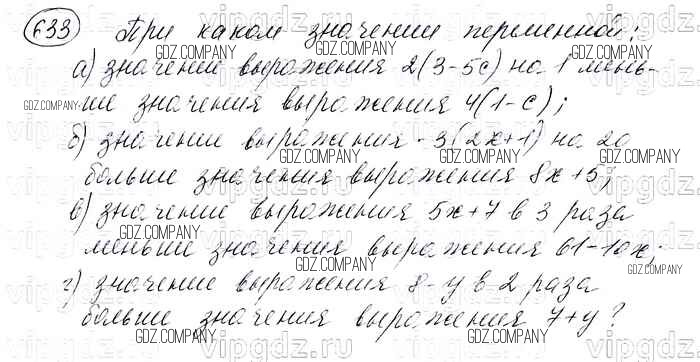 633 При каком значении перменной:
а) значение выражения 2(3-5c) на 1 мень-
ше значения выражения 4(1-c);
б) значение выражения -3(2x+1) на 20
больше значения выражения 8x+5;
в) значение выражения 5x+7 в 3 раза
меньше значения выражения 61-10x;
г) значение выражения 8-y в 2 раза
больше значения выражения 7+y?
GDZ.COMPANY
vipgdz.ru